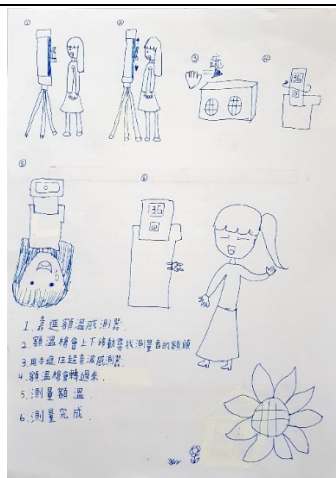 ①
②
③
④
⑤
⑥
1. 靠近額溫感測器.
2. 額溫槍會上下移動尋找測量者的額頭
3. 用手遮住超音波感測器.
4. 額溫槍會轉過來.
5. 測量額溫.
6. 測量完成.